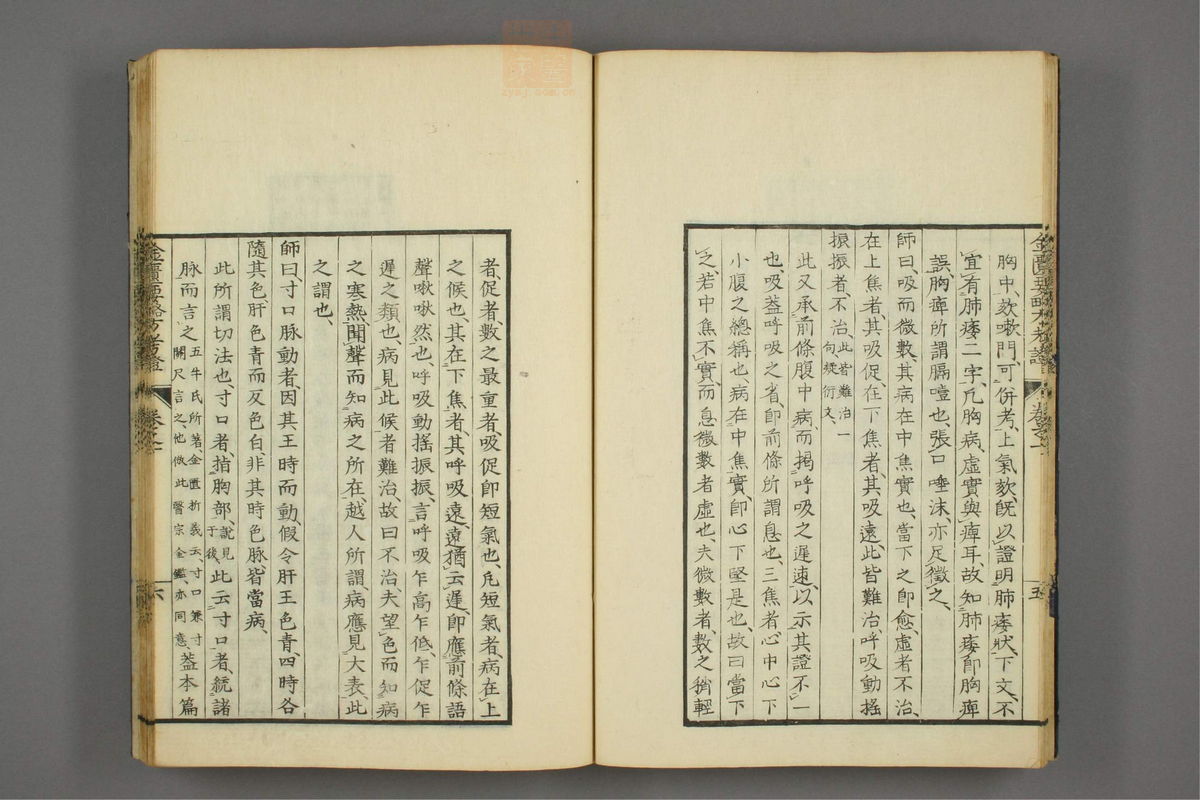 胸中、欬嗽門、可併考、上氣欬、既以證明肺痿狀、下文、不
宜有肺痿二字、凡胸病、虛實與痺耳、故知肺痿卽胸痺
誤、胸痺所謂膈噎也、張口唾沫、亦足徵之、
師曰、吸而微數、其病在中焦實也、當下之卽愈、虛者不治、
在上焦者、其吸促、在下焦者、其吸遠、此皆難治、呼吸動搖
振振者、不治、此皆難治一句、疑衍文、
此又承前條腹中病、而揭呼吸之遲速、以示其證不一
也、吸蓋呼吸之省、卽前條所謂息也、三焦者、心中心下
小腹之總稱也、病在中焦實、卽心下堅是也、故曰當下
之、若中焦不實、而息微數者虛也、夫微數者、數之稍輕
者、促者、數之最重者、吸促卽短氣也、凡短氣者、病在上
之候也、其在下焦者、其呼吸遠、遠猶云遲、卽應前條語
聲啾啾然也、呼吸動搖振振、言呼吸乍高乍低、乍促乍
遲之類也、病見此候者難治、故曰不治、夫望色而知病
之寒熱、聞聲而知病之所在、越人所謂、病應見大表、此
之謂也、
師曰、寸口脉動者、因其王時而動、假令肝王色青、四時各
隨其色、肝色青而反色白、非其時色脉、皆當病、
此所謂切法也、寸口者、指胸部、說見于後、此云寸口者、統諸
脉而言之、五牛氏所著、金匱析義云、寸口兼寸關尺言之、他倣此、醫宗金鑑、亦同意、蓋本篇
金匱要略方考證
卷之一
五
六